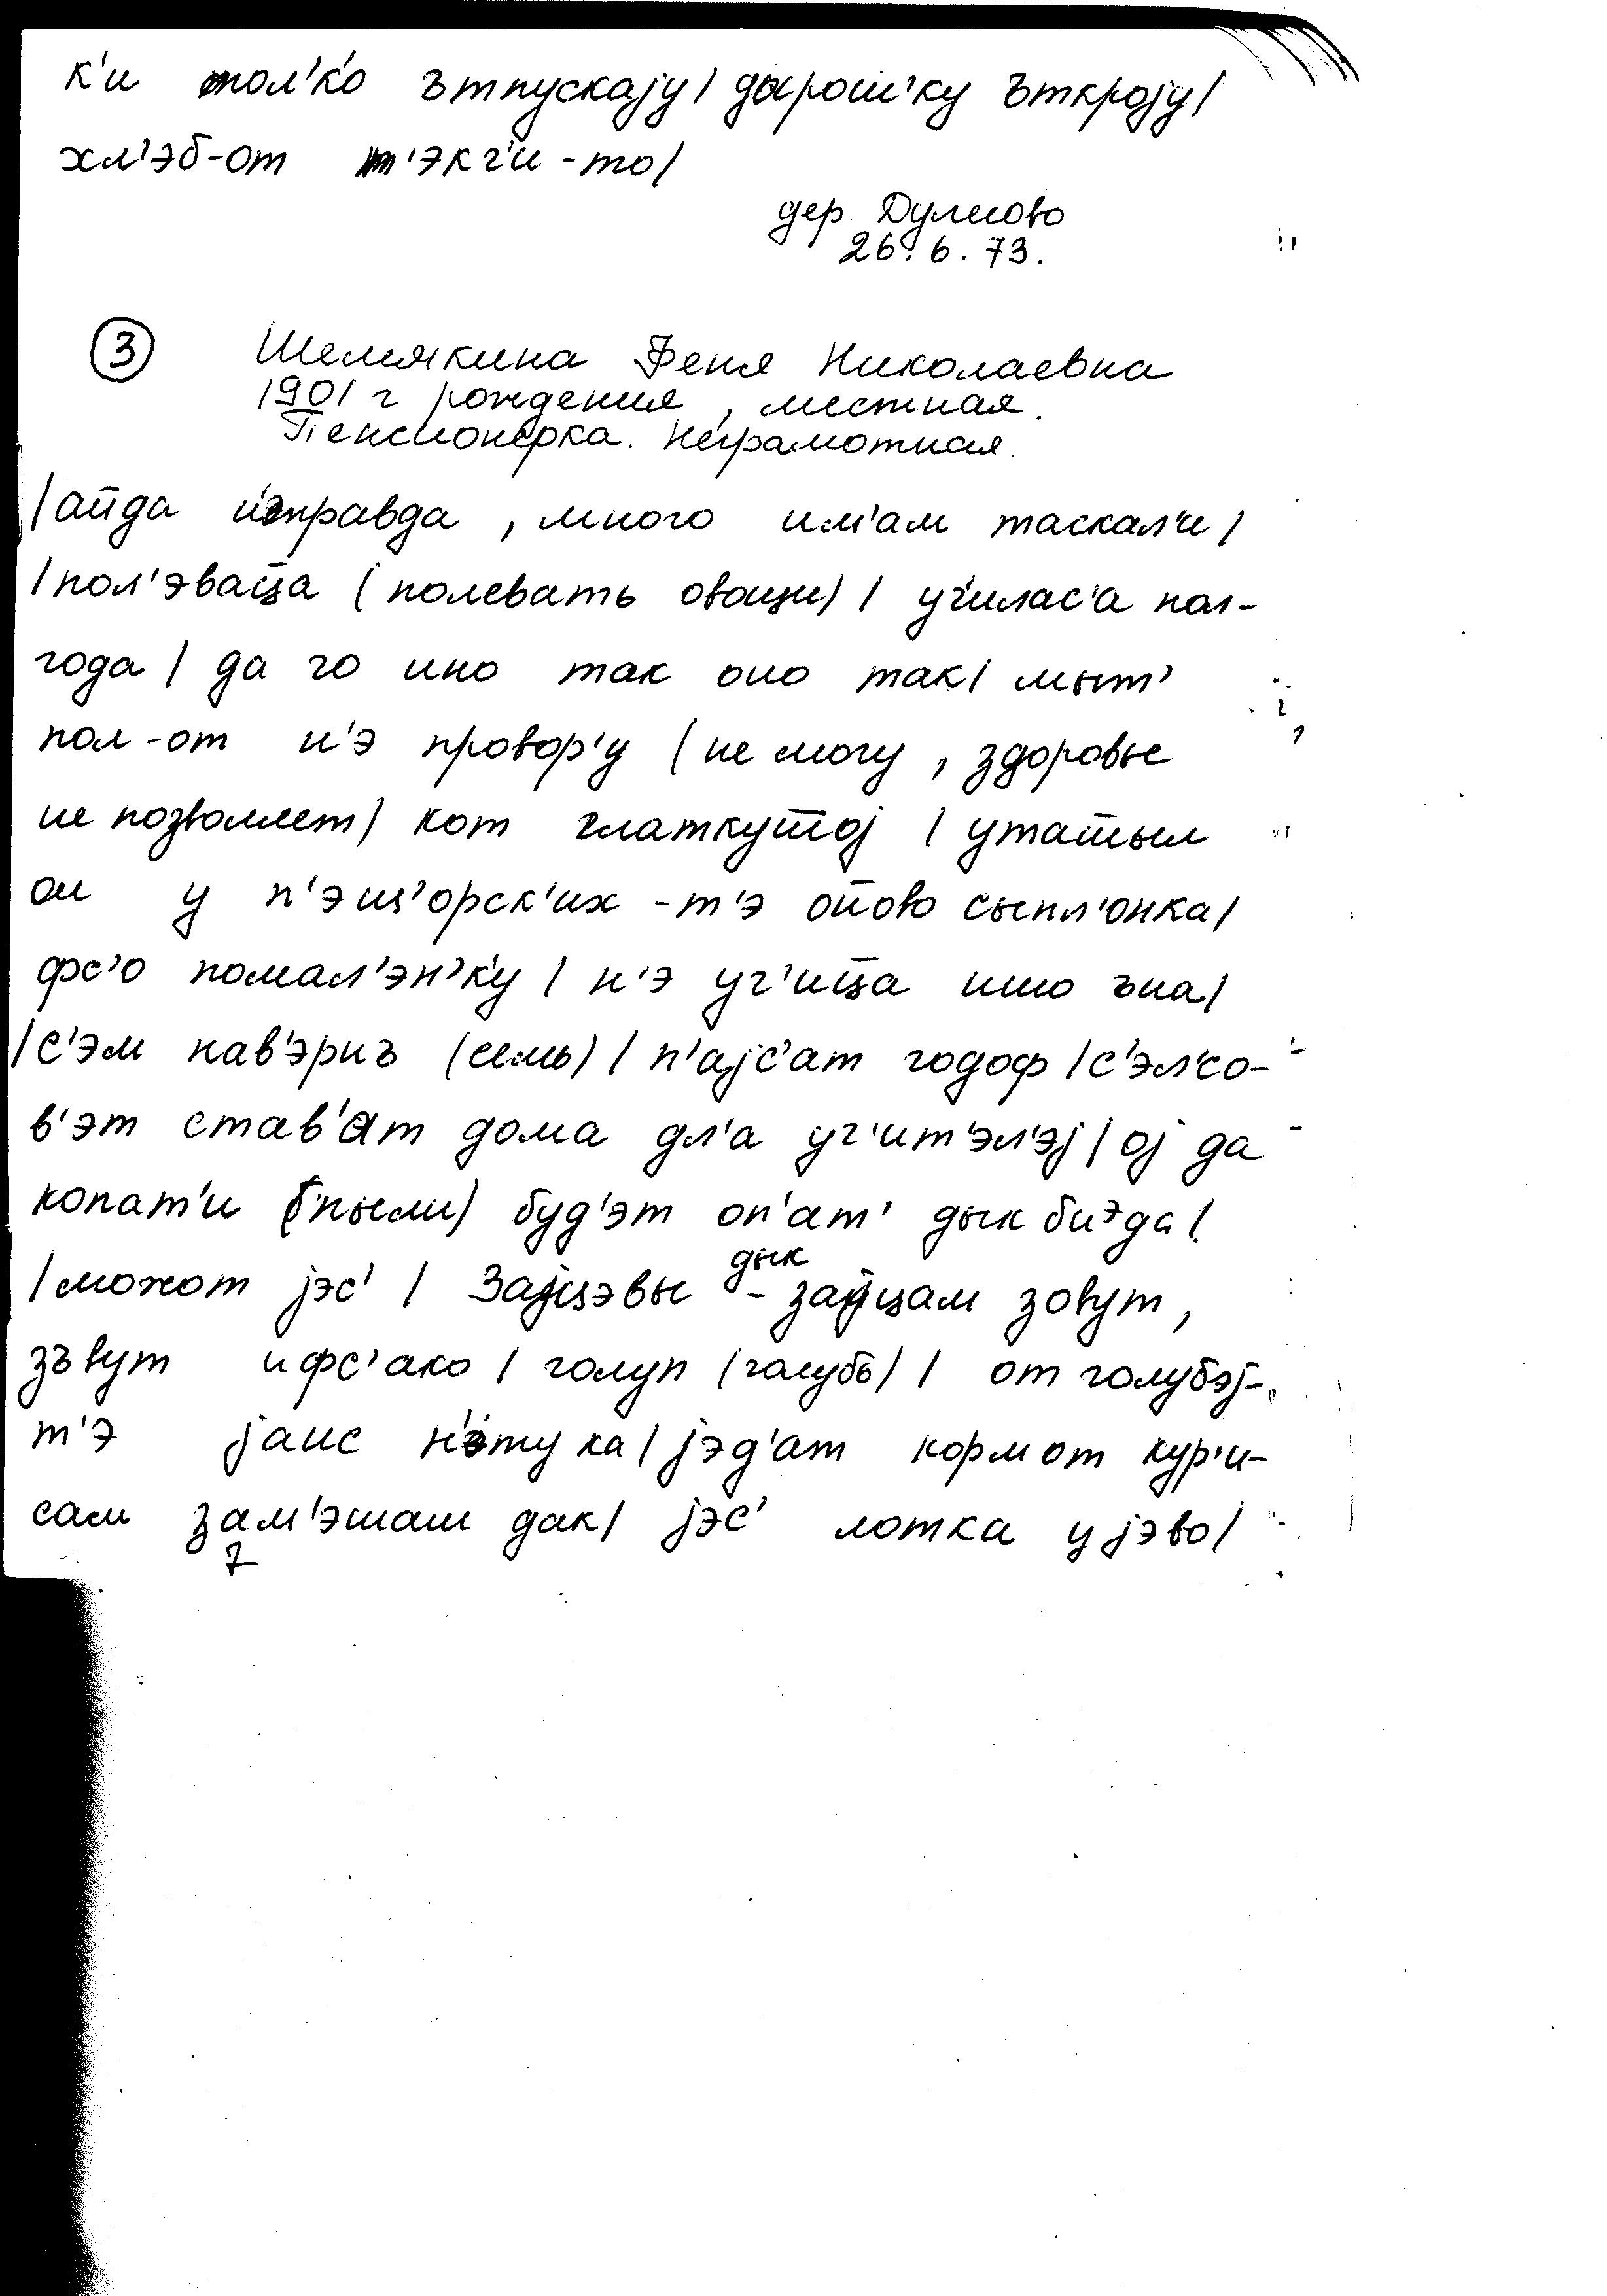 к'и тол'к'о ътпускаjу/ дырош'ку ъткроjу/
хл'эб-от т'экг'и-то/
дер. Дулиово
26.6.73.
3 Шемякина Феня Николаевна
1901 г рождения, местная.
Пенсионерка. Неграмотная.
/айда и правда, много им'ам таскал'и/
/пол'эваца (полевать овощи)/ уч'илас'а пол-
года/ да го ино так оно так/ мыт'
пол-от н'э провор'у (не могу, здоровье
не позволяет) кот глаткутоj / утатыл
он у п'эщ'орск'их-т'э ойово сыпл'онка/
фс'о помал'эн'к'у / н'э уч'ица ишо ъна/
/с'эм нав'эриъ (семь)/ п'аjс'ат годоф /с'эл'со-
в'эт став'ат дома дл'а уч'ит'эл'эj/ оj да
копат'и (пыли) буд'эт оп'ат' дык биэда/
/можот jэс' / Заjцэвы дык - заjцам зовут,
зъвут ифс'ако / голуп (голубь)/ от голубэj-
т'э jаис н'эту ка/ jэд'ат корм от кур'и-
сам зам'эшаш дак/ jэс' лотка у jэво/
7